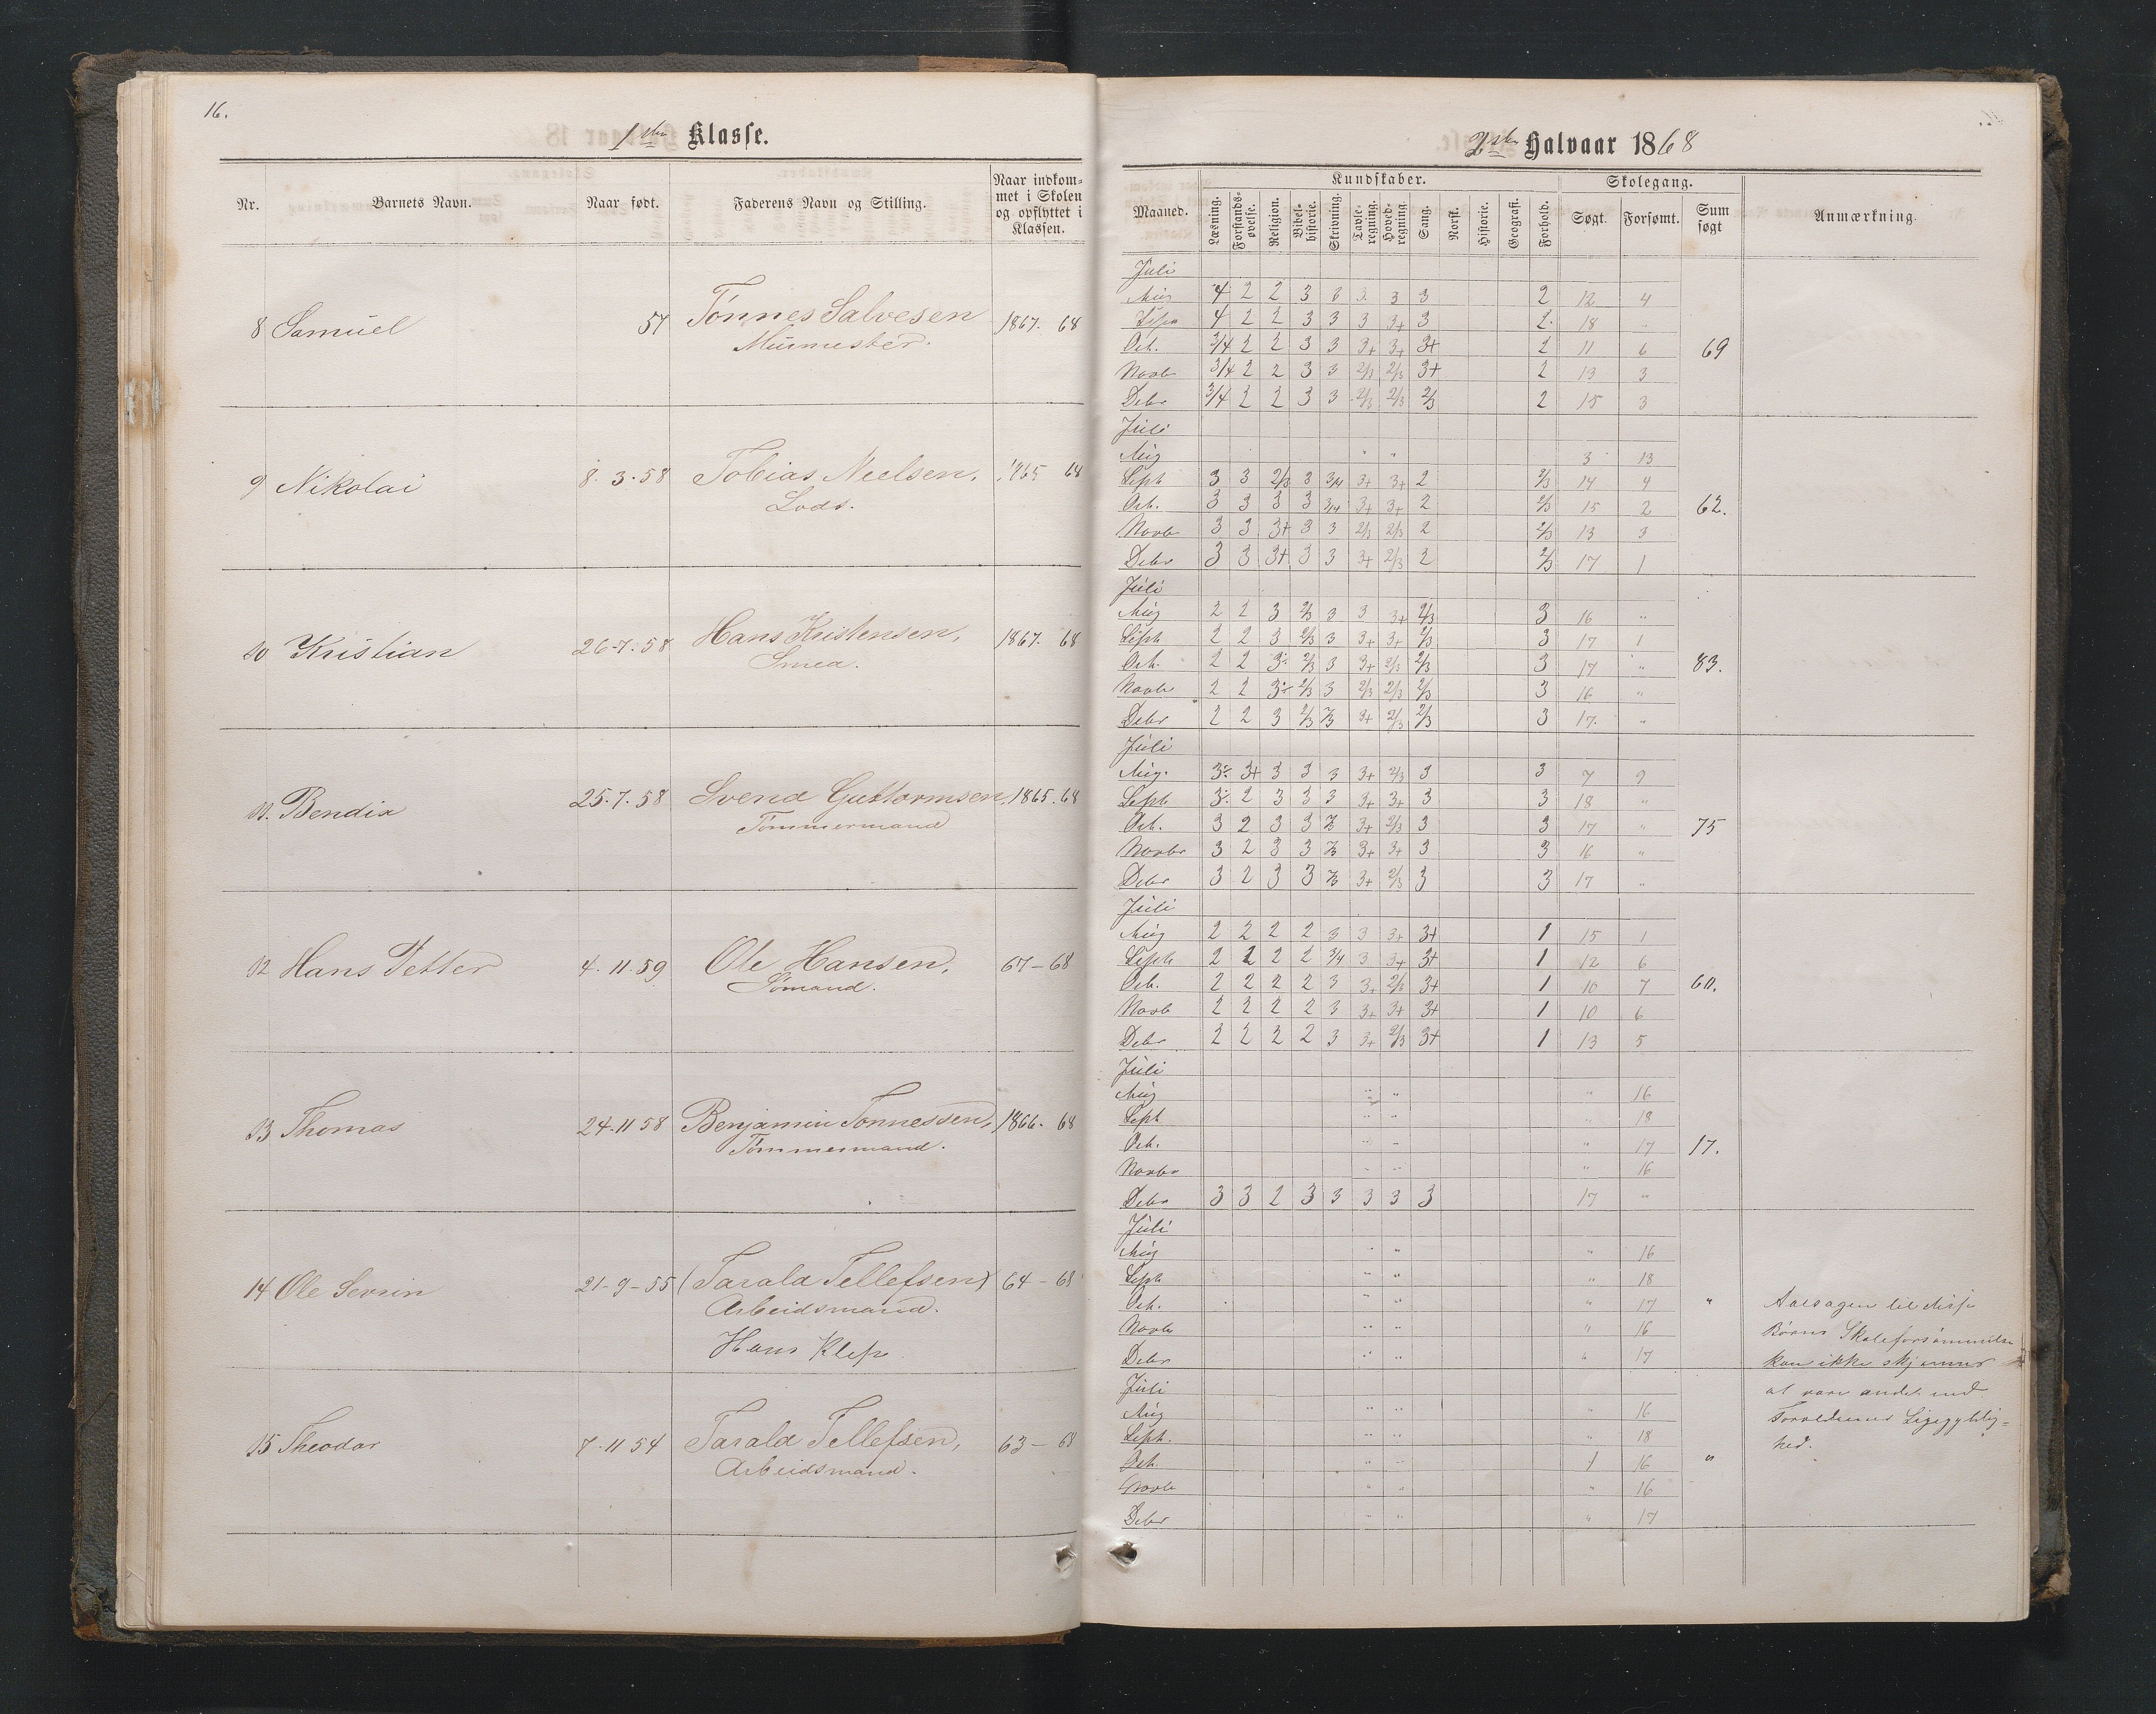 16.
1ste Klasse.
Nr. Barnets Navn. Naar født. Faderens Navn og Stilling. Naar indkom-
met i Skolen
og opflyttet i
Klassen.
8 Samuel 57 Tønnes Salvesen 1867. 68
Murmester.
9 Nikolai 8. 3. 58 Tobias Nielsen, 1865 68
Lods.
10 Kristian 26-7. 58 Hans Kristensen, 1867. 68
Smed.
11. Bendix 25. 7. 58 Svend Guttormsen, 1865. 68
Tømmermand
12 Hans Petter 4. 11. 59 Ole Hansen, 67-68
Sømand.
13 Thomas 24-11 58 Benjamin Tønnessen, 1866- 68
Tømmermand.
14 Ole Severin 21-9-55 (Tarald Tellefsen) 64-68
Arbeidsmand.
Hans Klep
15 Theodor 7-11 54 Tarald Tellefsen, 63-68
Arbeidsmand.
2det Halvaar 1868
Kundskaber. Skolegang.
Maaned. Læsning. Forstands-øvelse. Religion. Bibel-historie. Skrivning. Tavle-regning. Hoved-regning. Sang. Norsk. Historie. Geografi. Forhold. Søgt. Forsømt. Sum søgt Anmærkning.
Juli
Aug 4 2 2 3 3 3 3 3 2 12 4
Sept 4 2 2 3 3 3 3+ 3 2 18 "
Oct. 3/4 2 2 3 3 3+ 3+ 3+ 2 11 6 69
Novb 3/4 2 2 3 3 2/3 2/3 3+ 2 13 3
Debr 3/4 2 2 3 3 2/3 2/3 2/3 2 15 3
Juli
Aug " " 3 13
Sept 3 3 2/3 3 3/4 3+ 3+ 2 2/3 14 4
Oct. 3 3 3 3 3/4 3+ 3+ 2 2/3 15 2 62.
Novb 3 3 3+ 3 3 2/3 2/3 2 2/3 13 3
Debr 3 3 3+ 3 3 3+ 2/3 2 2/3 17 1
Juli
Aug 2 2 3 2/3 3 3 3+ 2/3 3 16 "
Sept 2 2 3 2/3 3 3+ 3+ 2/3 3 17 1
Oct. 2 2 3÷ 2/3 3 3+ 2/3 2/3 3 17 " 83.
Novbr 2 2 3÷ 2/3 3 2/3 2/3 2/3 3 16 "
Debr 2 2 3 2/3 2/3 3+ 2/3 2/3 3 17. "
Juli
Aug. 3÷ 3+ 3 3 3 3+ 2/3 3 3 7 9
Sept 3÷ 2 3 3 3 3+ 3+ 3 3 18 "
Oct. 3 2 3 3 2/3 3+ 2/3 3 3 17 " 75
Novbr 3 2 3 3 2/3 3+ 3+ 3 3 16 "
Debr 3 2 3 3 2/3 3+ 2/3 3 3 17 "
Juli
Aug 2 2 2 2 3 3 3+ 3+ 1 15 1
Sept 2 2 2 2 3/4 3 3+ 3+ 1 12 6
Oct. 2 2 2 2 3 3+ 2/3 3+ 1 10 7 60.
Novb 2 2 2 2 3 3+ 3+ 3+ 1 10 6
Debr 2 2 2 2 3 3+ 2/3 3+ 1 13 5
Juli
Aug " " " 16
Sept " " " 18
Oct. " " " 17 17.
Novbr " " " 16
Debr 3 3 2 3 3 3 3 3 17 "
Juli
Aug " " " 16
Sept " " " 18
Oct. " " " 17 "
Novb " " " 16
Debr " " " 17
Juli
Aug " " " 16
Sept. " " " 18
Oct. " " 1 16 "
Novb " " " 16
Debr " " " 17
Aarsagen til disse
Børns Skoleforsømmelse
kan ikke skjønnes
at være andet end
Forældrenes Ligegyldig-
hed.